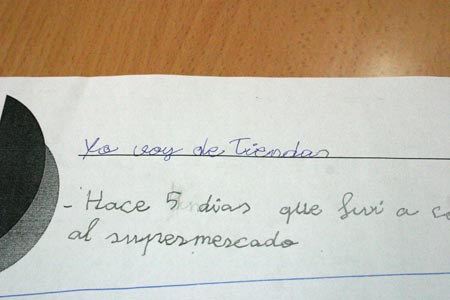 Yo voy de Tiendas
- Hace 5 dias que fui a co
al supermescado